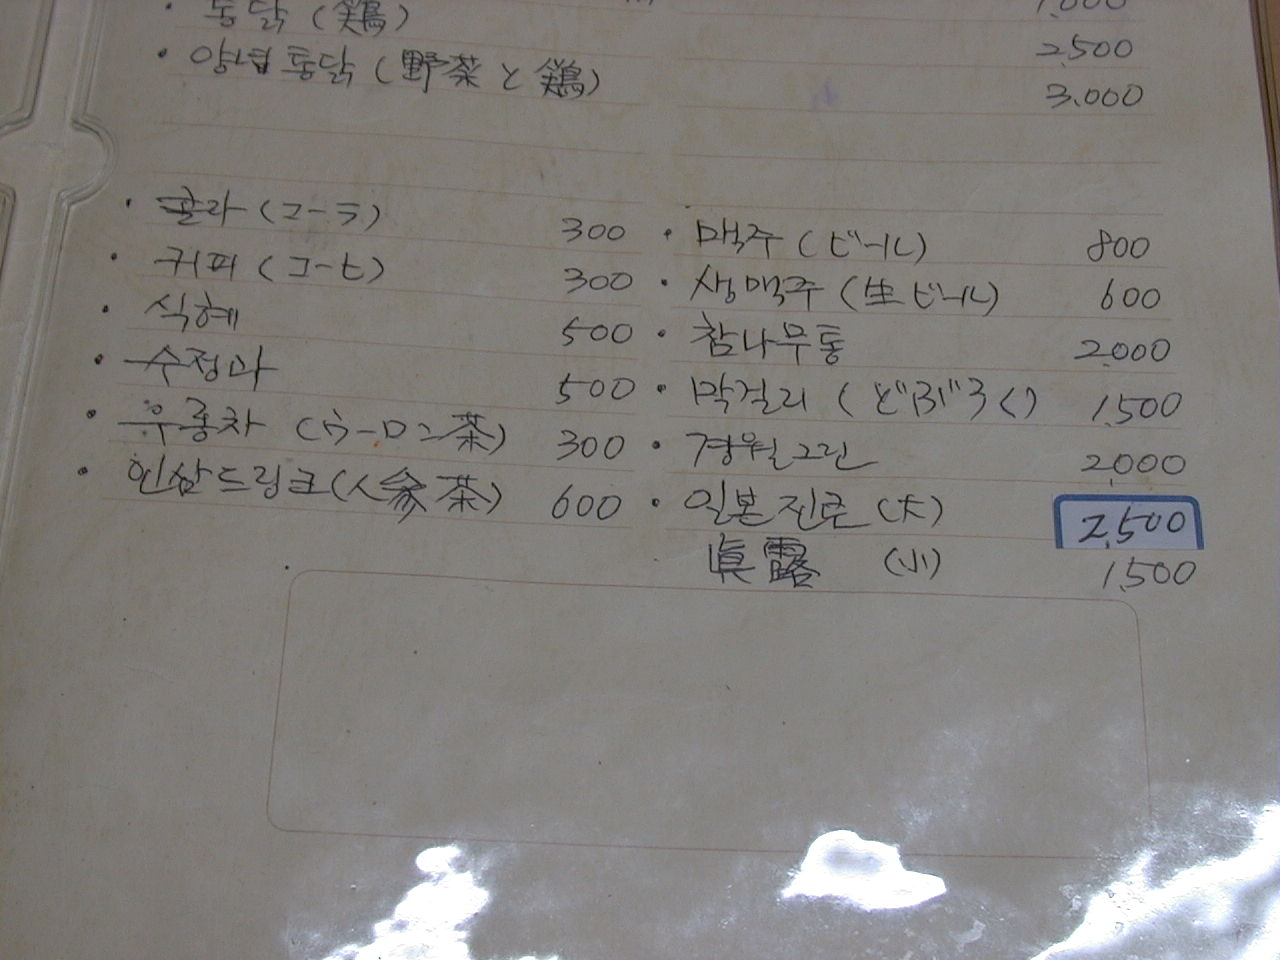 1,000
· 통닭 (鶏) 2,500
· 양념통닭 (野菜と鶏) 3.000
· 콜라 (コーラ) 300
· 커피 (コーヒ) 300
· 식혜 500
· 수정과 500
· 우롱차 (ウーロン茶) 300
· 인삼드링크 (人参茶) 600
· 맥주 (ビール) 800
· 생맥주 (生ビール) 600
· 참나무통 2,000
· 막걸리 (どぶろく) 1,500
· 경월그린 2,000
· 일본진로 (大) 2,500
眞露 (小) 1,500